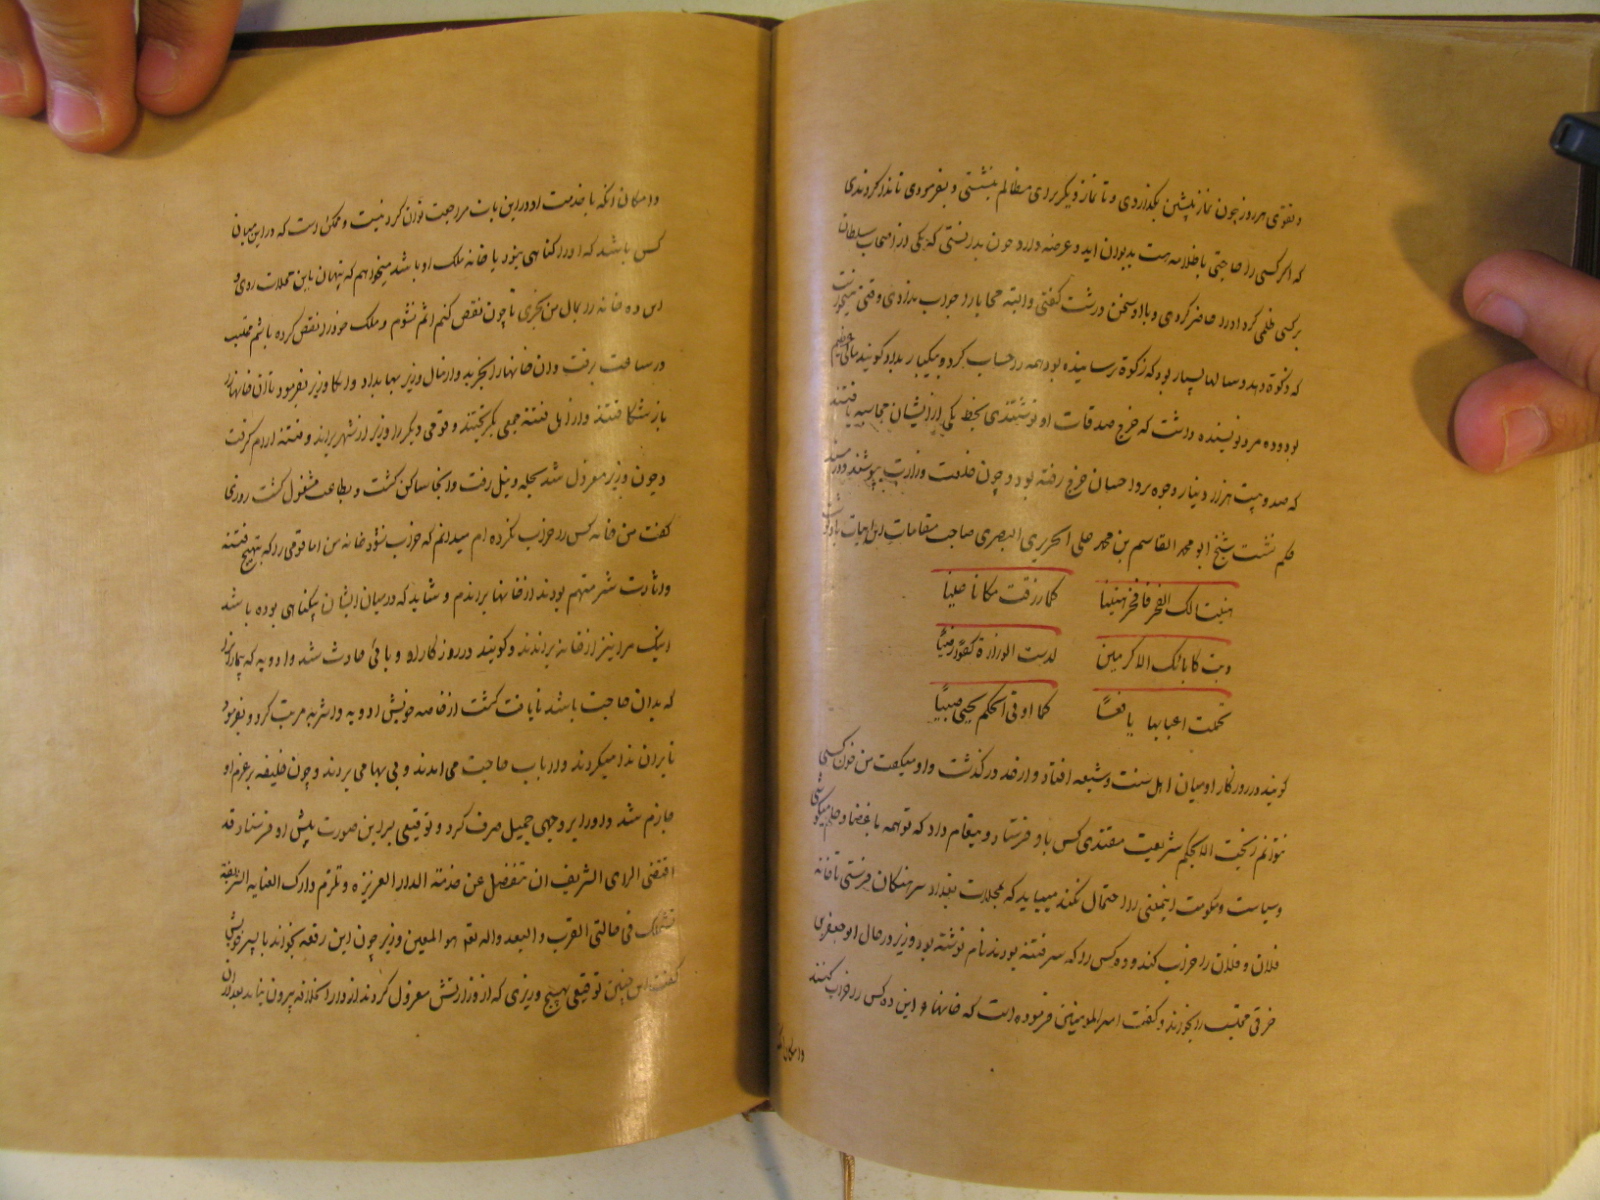 و تقوی هر روز چون نماز پیشین بگذاردی و تا نماز دیگر برای مظالم بنشستی و بفرمودی تا ندا کردندی
که اگر کسی را حاجتی یا ظلامه هست بدیوان آید و عرضه دارد چون بدانستی که یکی از اصحاب سلطان
بر کسی ظلمی کرد او را حاضر کردی و با او سخن درشت گفتی و البته محابا را جواب ندادی و وقتی میخواست
که زکوة دهد و سالها بسیار بود که زکوة رسانیده بود همه را حساب کرد و بیکبار بداد و گویند
بود و ده مرد نویسنده داشت که خرج صدقات او نوشتندی بخط یکی از ایشان محاسبه یافتند
که صد و بیست هزار دینار در وجوه بر و احسان خرج رفته بود و چون خلعت وزارت بپوشید و در مسند
حکم نشست شیخ ابو محمد القاسم بن محمد علی الحریری البصری صاحب مقامات این ابیات
هنیئا لک الفخر فافخر هنیئا کما رزقت مکانا علیا
وبت کابائک الاکرمین لدست الوزارة کفوا رضیا
تحملت اعبائها یافعا کما اوتی الحکم یحیی صبیا
گویند در روزگار او میان اهل سنت و شیعه افتاد و از حد درگذشت و او میگفت من خون کسی
نتوانم ریخت الا بحکم شریعت مقتدی کس باو فرستاد و پیغام داد که تو همه باغضا و حلم میکوشی
و سیاست و حکومت اینمعنی را احتمال نکند میباید که بمحلات بغداد سرهنگان فرستی تا خانه
فلان و فلان را خراب کند و ده کس را که سر فتنه بودند نام نوشته بود وزیر در حال ابو جعفر
خرقی محتسب را بخواند و گفت امیر المومنین فرموده است که خانهاء این ده کس را خراب کنند
و امکان آنکه
و امکان آنکه با خدمت او در این باب مراجعت توان کرد نیست و ممکن است که در این میان
کسی باشد که او را گناهی نبود یا خانه ملک او باشد میخواهم که پنهان باین محلات روی و
این ده خانه را بمال من بخری تا چون نقض کنم آثم نشوم و ملک خود را نقض کرده باشم محتسب
در ساعت برفت و آن خانها را بخرید و از مال وزیر بها بداد و آنگاه وزیر بفرمود تا آن خانها را
باز شکافتند و از اهل فتنه جمعی بگریختند و قومی دیگر را وزیر از شهر براند و فتنه آرام گرفت
و چون وزیر معزول شد بحله و نیل رفت و آنجا ساکن گشت و بطاعت مشغول گشت روزی
گفت من خانه کس را خراب نکرده ام میدانم که خراب نشود خانه من اما قومی را که بتهیج فتنه
و اثارت شر متهم بودند از خانها براندم و شاید که در میان ایشان بیگناهی بوده باشد
اینک مرا نیز از خانه براندند و گویند در روزگار او وبائی حادث شد و ادویه که بیماران را
که بدان حاجت باشد نایافت گشت از خاصه خویش ادویه و اشربه مرتب کرد و بفرمود
تا بر آن ندا میکردند و ارباب حاجت می آمدند و بی بها می بردند و چون خلیفه بر عزم او
جازم شد و او را بر وجهی جمیل صرف کرد و توقیعی بر این صورت پیش او فرستاد قد
اقتضی الرای الشریف ان تنفصل عن خدمة الدار العزیزه و تلزم دارک العنایه الشریفة
تشملک فی حالتی القرب و البعد والله تعه هو المعین وزیر چون این رقعه بخواند با پسر خویش
گفت این چنین توقیعی بهیچ وزیری که از وزارتش معزول کردند از دار الخلافه بیرون نیامد بعد از آن